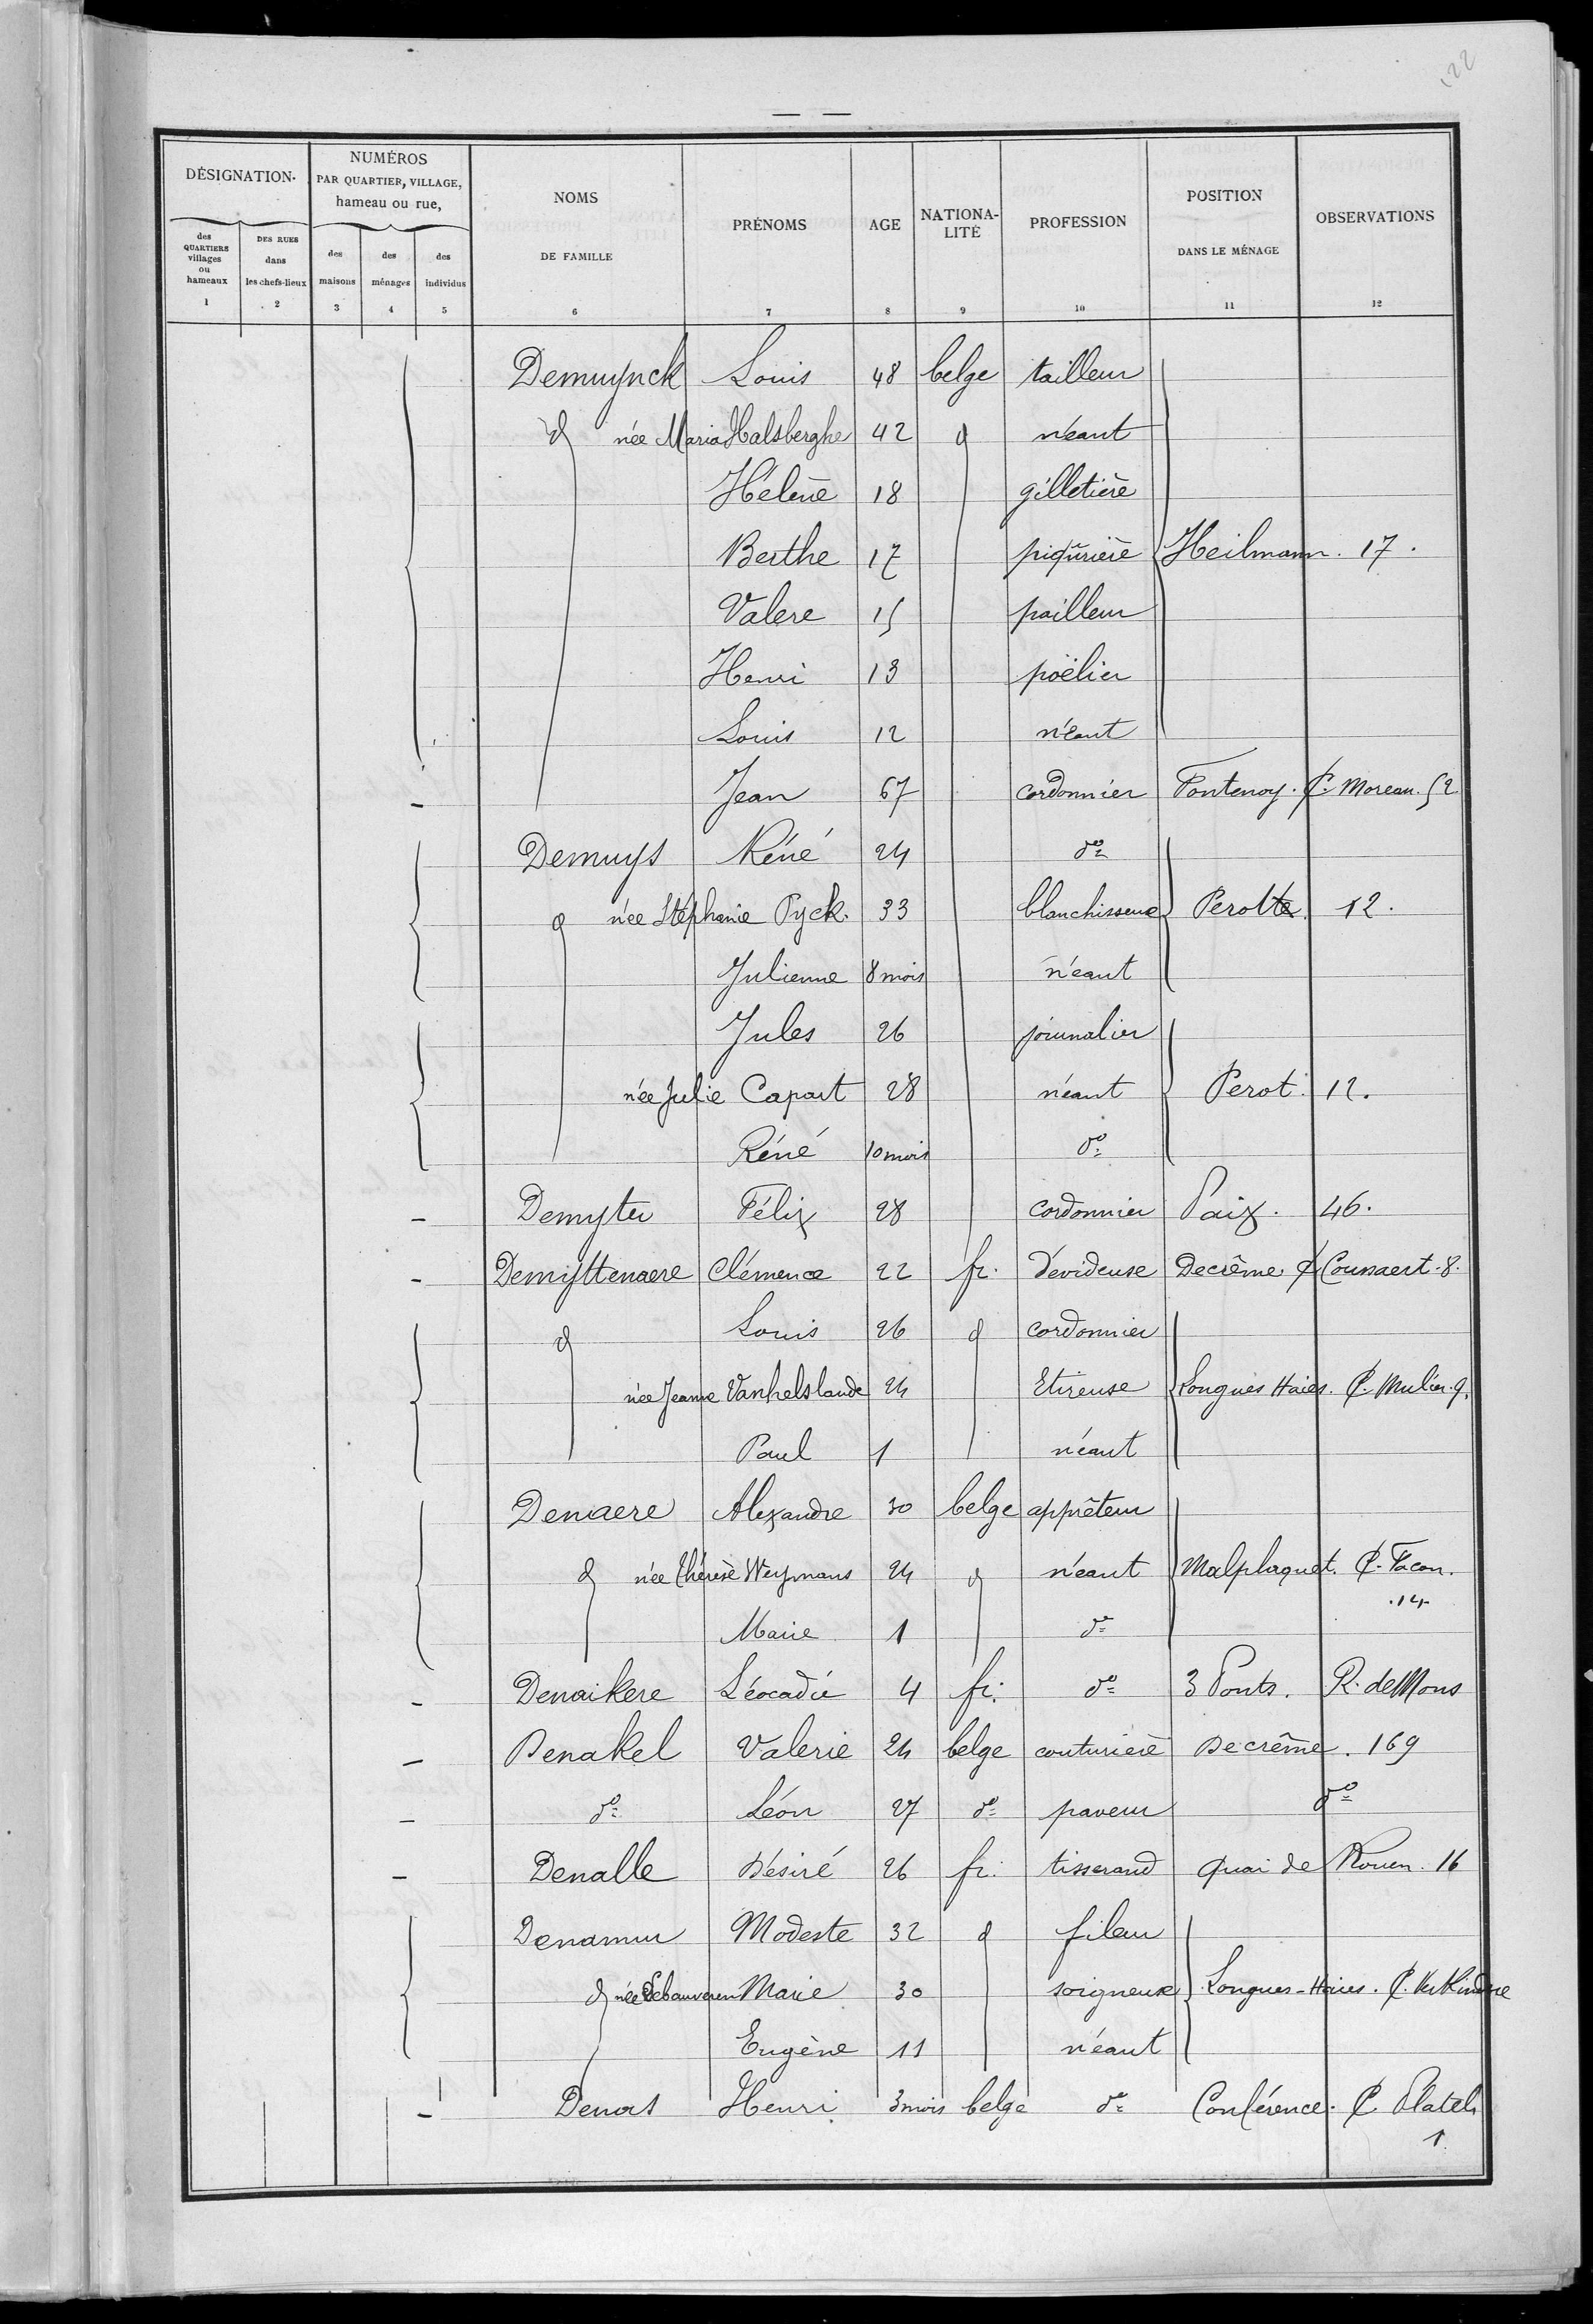 122
DÉSIGNATION. NUMÉROS PAR QUARTIER, VILLAGE, hameau ou rue, NOMS DE FAMILLE PRÉNOMS AGE NATIONALITÉ PROFESSION POSITION DANS LE MÉNAGE OBSERVATIONS
des QUARTIERS villages ou hameaux DES RUES dans les chefs-lieux des maisons des ménages des individus
1 2 3 4 5 6 7 8 9 10 11 12
Demuynck Louis 48 belge tailleur
d née Maria Halsberghe 42 d néant
Hélène 18 gilletière
Berthe 17 piqûrière Heilmann. 17.
Valere 15 pailleur
Henri 13 poëlier
Louis 12 néant
Jean 67 cordonnier Fontenoy. C. Moreau. 52
Demuys Réné 24 do
d née Stéphanie Pyck. 33 blanchisseuse Perotte 12.
Julienne 8 mois néant
Jules 26 journalier
née Julie Capart 28 néant Perot. 12.
Réné 10 mois do
Demyter Félix 28 cordonnier Paix. 46.
Demyttenaere Clémence 22 fr. dévideuse Decrême C Counaert. 8.
d Louis 26 d cordonnier
née Jeanne Vanhelslande 24 Etireuse Longues Haies. C. Mulier 9.
Paul 1 néant
Denaere Alexandre 30 belge apprêteur
d née Thérèse Weymans 24 d néant Malplaquet. C. Facon.
.14
Marie 1 do
Denaikere Léocadie 4 fr. do 3 Ponts. R. de Mons
Denakel Valerie 24 belge couturière Decrême. 169
do Léon 27 do paveur do
Denalle Désiré 26 fr. tisserand Quai de Rouen. 16
Denamur Modeste 32 d fileur
d née Marie 30 soigneuse Longues-Haies. C.
Eugène 11 néant
Denas Henri 3 mois belge do Conférence. C Platel
1.